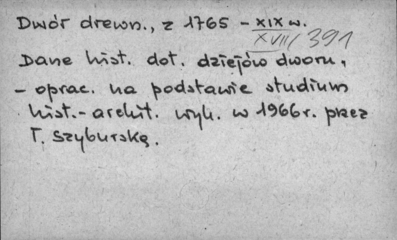 Dwór drewn., z 1765 - XIX w.
XVII/391
Dane hist. dot. dziejów dworu,
- oprac. na podstawie studium
hist.-archit. wyk. w 1966 r. przez
T. Szyburską.